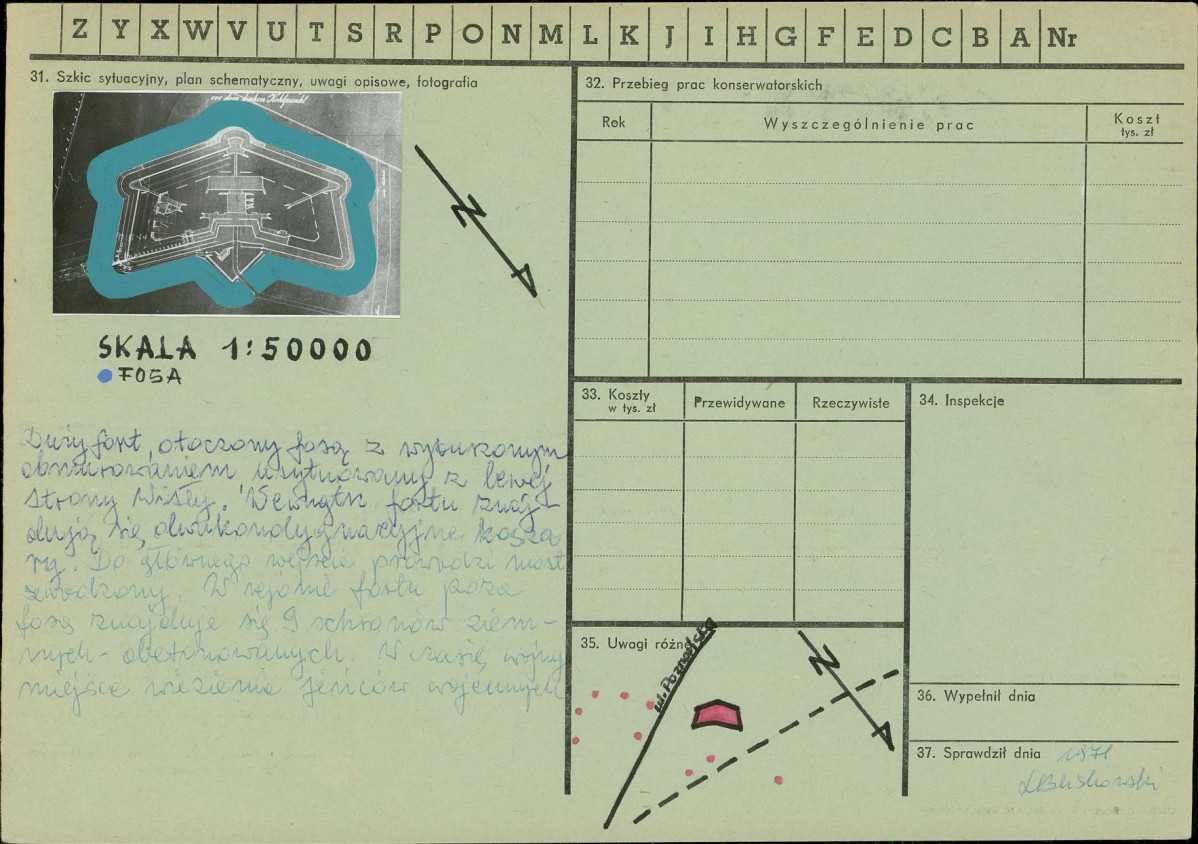 Z Y X W V U T S R P O N M L K J I H G F E D C B A Nr
31. Szkic sytuacyjny, plan schematyczny, uwagi opisowe, fotografia
vor dem linken
SKALA 1:50000
FOSA
Duży fort, otoczony fosą z wyburzonym
obmurowaniem usytuowany z lewej
strony Wisły. Wewnątrz fortu znaj-
dują się dwukondygnacyjne kosza-
ry. Do głównego wejścia prowadzi most
zwodzony. W rejonie fortu poza
fosą znajduje się 9 schronów ziem-
nych - obetonowanych. W czasie wojny
miejsce więzienia jeńców wojennych
32. Przebieg prac konserwatorskich
Rok
Wyszczególnienie prac
Koszt
tys. zł
33. Koszty
w tys. zł
Przewidywane
Rzeczywiste
34. Inspekcje
35. Uwagi różne
ul. Poznańska
N
N
36. Wypełnił dnia
37. Sprawdził dnia 1971